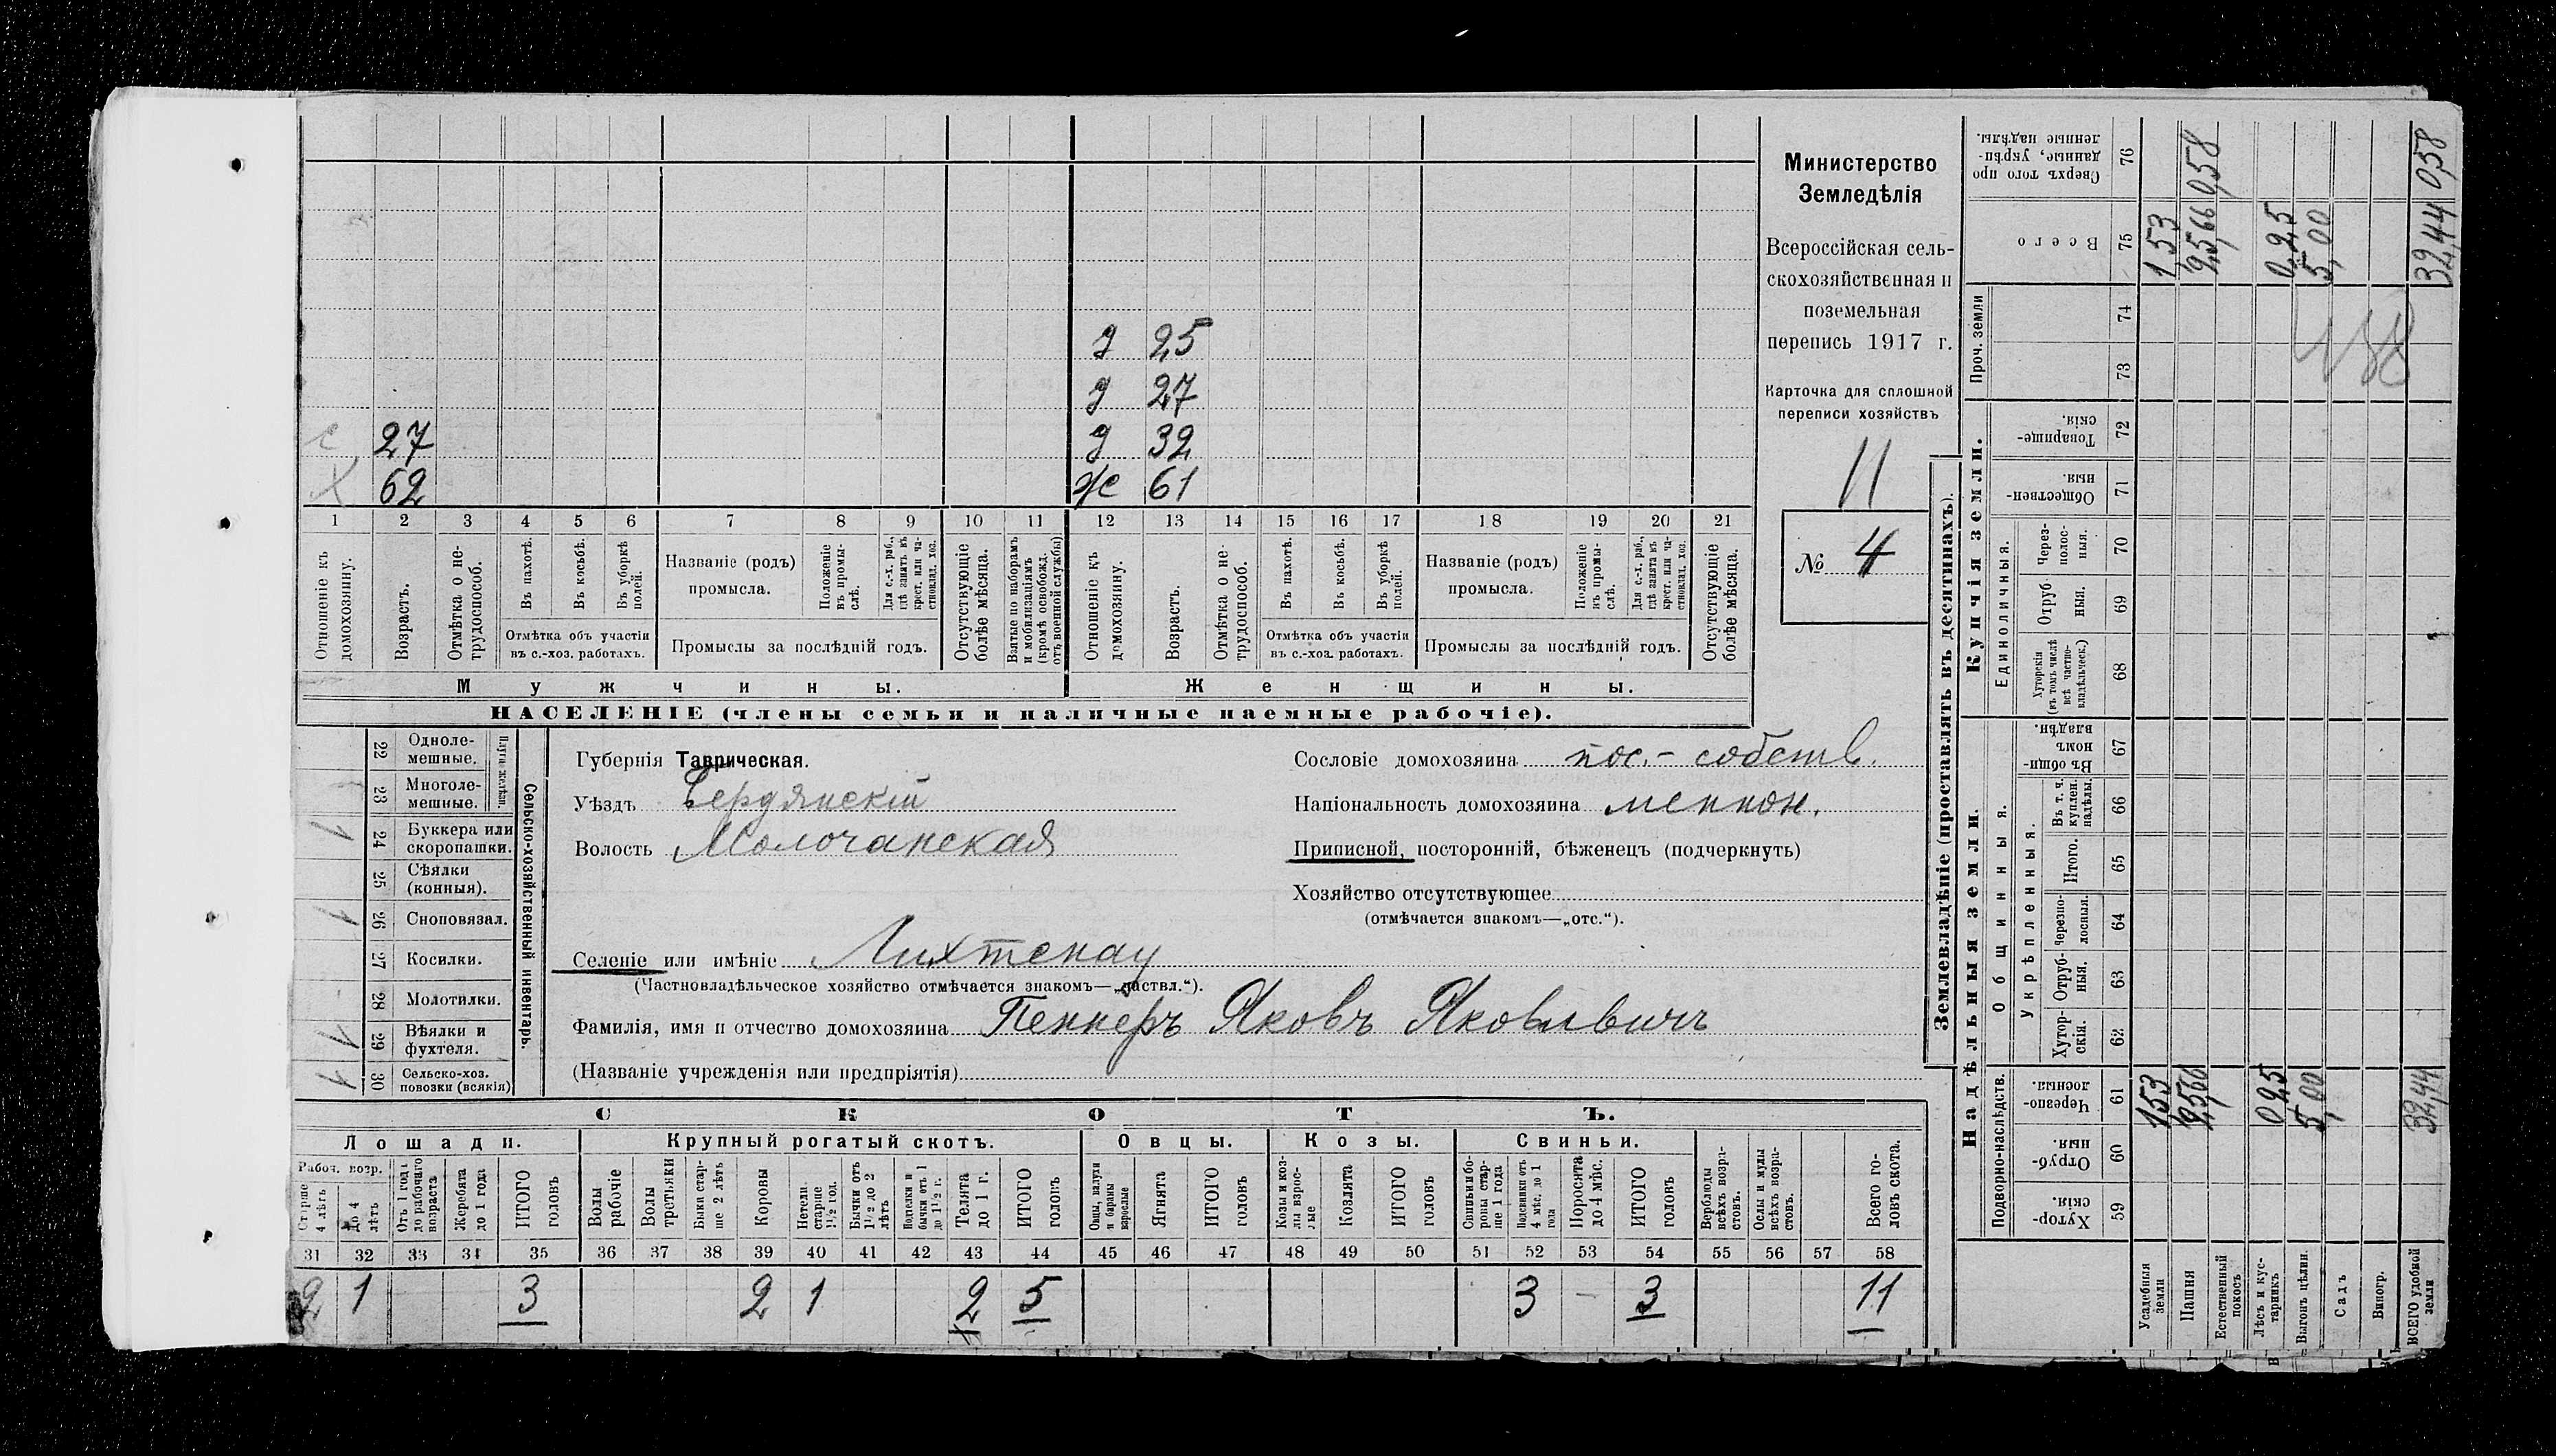 Министерство
Земледѣлія
Всероссійская сель-
скохозяйственная и
поземельная
перепись 1917 г.
Карточка для сплошной
переписи хозяйствъ
11
№ 4
д 25
д 27
с 27
д 32
х 62
ж 61
1 2 3 4 5 6 7 8 9 10 11 12 13 14 15 16 17 18 19 20 21
Отношеніе къ домохозяину.
Возрастъ.
Отмѣтка о не-трудоспособ.
Въ пахотѣ.
Въ косьбѣ.
Въ уборкѣ полей.
Отмѣтка объ участіи
въ с.-хоз. работахъ.
Названіе (родъ)
промысла.
Положеніе въ промы-слѣ.
Для с.-х. раб., гдѣ занятъ въ крест. или ча-стновлад. хоз.
Промыслы за послѣдній годъ.
Отсутствующіе болѣе мѣсяца.
Взятые по наборамъ и мобилизаціямъ (кромѣ освобожд. отъ военной службы)
Отношеніе къ домохозяину.
Возрастъ.
Отмѣтка о не-трудоспособ.
Въ пахотѣ.
Въ косьбѣ.
Въ уборкѣ полей.
Отмѣтка объ участіи
въ с.-хоз. работахъ.
Названіе (родъ)
промысла.
Положеніе въ промы-слѣ.
Для с.-х. раб., гдѣ занята въ крест. или ча-стновлад. хоз.
Промыслы за послѣдній годъ.
Отсутствующіе болѣе мѣсяца.
Мужчины.
Женщины.
НАСЕЛЕНІЕ (члены семьи и наличные наемные рабочіе).
22 Одноле-
мешные.
23 Многоле-
мешные.
24 Буккера или
скоропашки.
25 Сѣялки
(конныя).
26 Сноповязал.
27 Косилки.
28 Молотилки.
29 Вѣялки и
фухтеля.
30 Сельско-хоз.
повозки (всякія)
Сельско-хозяйственный инвентарь.
Губернія Таврическая.
Уѣздъ Бердянскій
Волость Молочанская
Сословіе домохозяина пос.- собств.
Національность домохозяина меннон.
Приписной, посторонній, бѣженецъ (подчеркнуть)
Хозяйство отсутствующее
(отмѣчается знакомъ—„отс.“).
Селеніе или имѣніе Лихтенау
(Частновладѣльческое хозяйство отмѣчается знакомъ—„частвл.“).
Фамилія, имя и отчество домохозяина Пеннеръ Яковъ Яковлевичъ
(Названіе учрежденія или предпріятія)
СКОТЪ.
Лошади.
Крупный рогатый скотъ.
Овцы.
Козы.
Свиньи.
Рабоч. возр.
Старше 4 лѣтъ
До 4 лѣтъ
Отъ 1 года до рабочаго возраста
Жеребята до 1 года
ИТОГО головъ
Волы рабочіе
Волы третьяки
Быки стар-ше 2 лѣтъ
Коровы
Нетели старше 1½ год.
Бычки отъ 1½ до 2 лѣтъ
Телята до 1 г.
ИТОГО головъ
Овцы, валухи и бараны взрослые
Ягнята
ИТОГО головъ
Козы и коз-лы взрос-лые
Козлята
ИТОГО головъ
Свиньи бо-ровы стар-ше 1 года
Подсвинки отъ 4 мѣс. до 1 года
Поросята до 4 мѣс.
ИТОГО головъ
Верблюды всѣхъ возра-стовъ.
Ослы и мулы всѣхъ возра-стовъ.
Всего го-ловъ скота.
31 32 33 34 35 36 37 38 39 40 41 42 43 44 45 46 47 48 49 50 51 52 53 54 55 56 57 58
2 1 3 2 1 2 5 3 – 3 11
Землевладѣніе (проставлять въ десятинахъ).
Надѣльныя земли.
Купчія земли.
Проч. земли
Подворно-наслѣдств.
Общинныя.
Укрѣпленныя.
Единоличныя.
Сверхъ того про
данные, укрѣ-
пленные надѣлы.
76
Всего
75
74
73
Товарище-
скія.
72
Обществен-
ныя.
71
Через-
полос-
ныя.
70
Отруб
ныя.
69
Хуторскія
(въ томъ числѣ
всѣ частно-
владѣльческ.)
68
Въ общи-
номъ
владѣн.
67
Въ т. ч.
куплен.
надѣлы
66
Итого.
65
Черезпо-
лосныя.
64
Отруб-
ныя.
63
Хутор-
скія.
62
Черезпо-
лосныя.
61
Отруб-
ныя.
60
Хутор-
скія.
59
Усадебныя земли 1,53 1,53
Пашня 25,66 25,66 0,58
Естественный покосъ
Лѣсъ и кус-тарникъ 0,25 0,25
Выгонъ цѣлин. 5,00 5,00
Садъ
Виногр.
ВСЕГО удобной земли 32,44 32,44 0,58